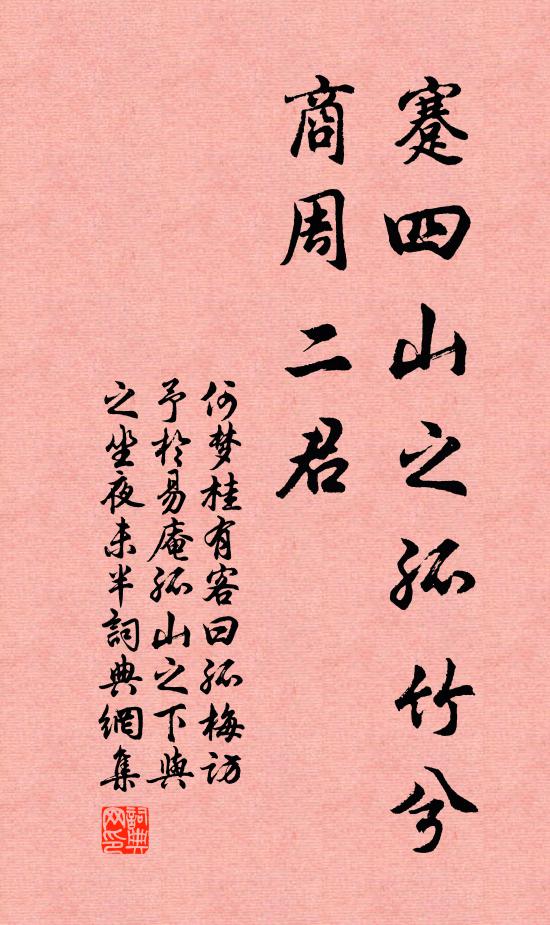 蹇四山之孤竹兮
商周二君
何梦桂有客曰孤梅访
予於易庵孤山之下與
之坐夜未半詞典網集
詞典网印